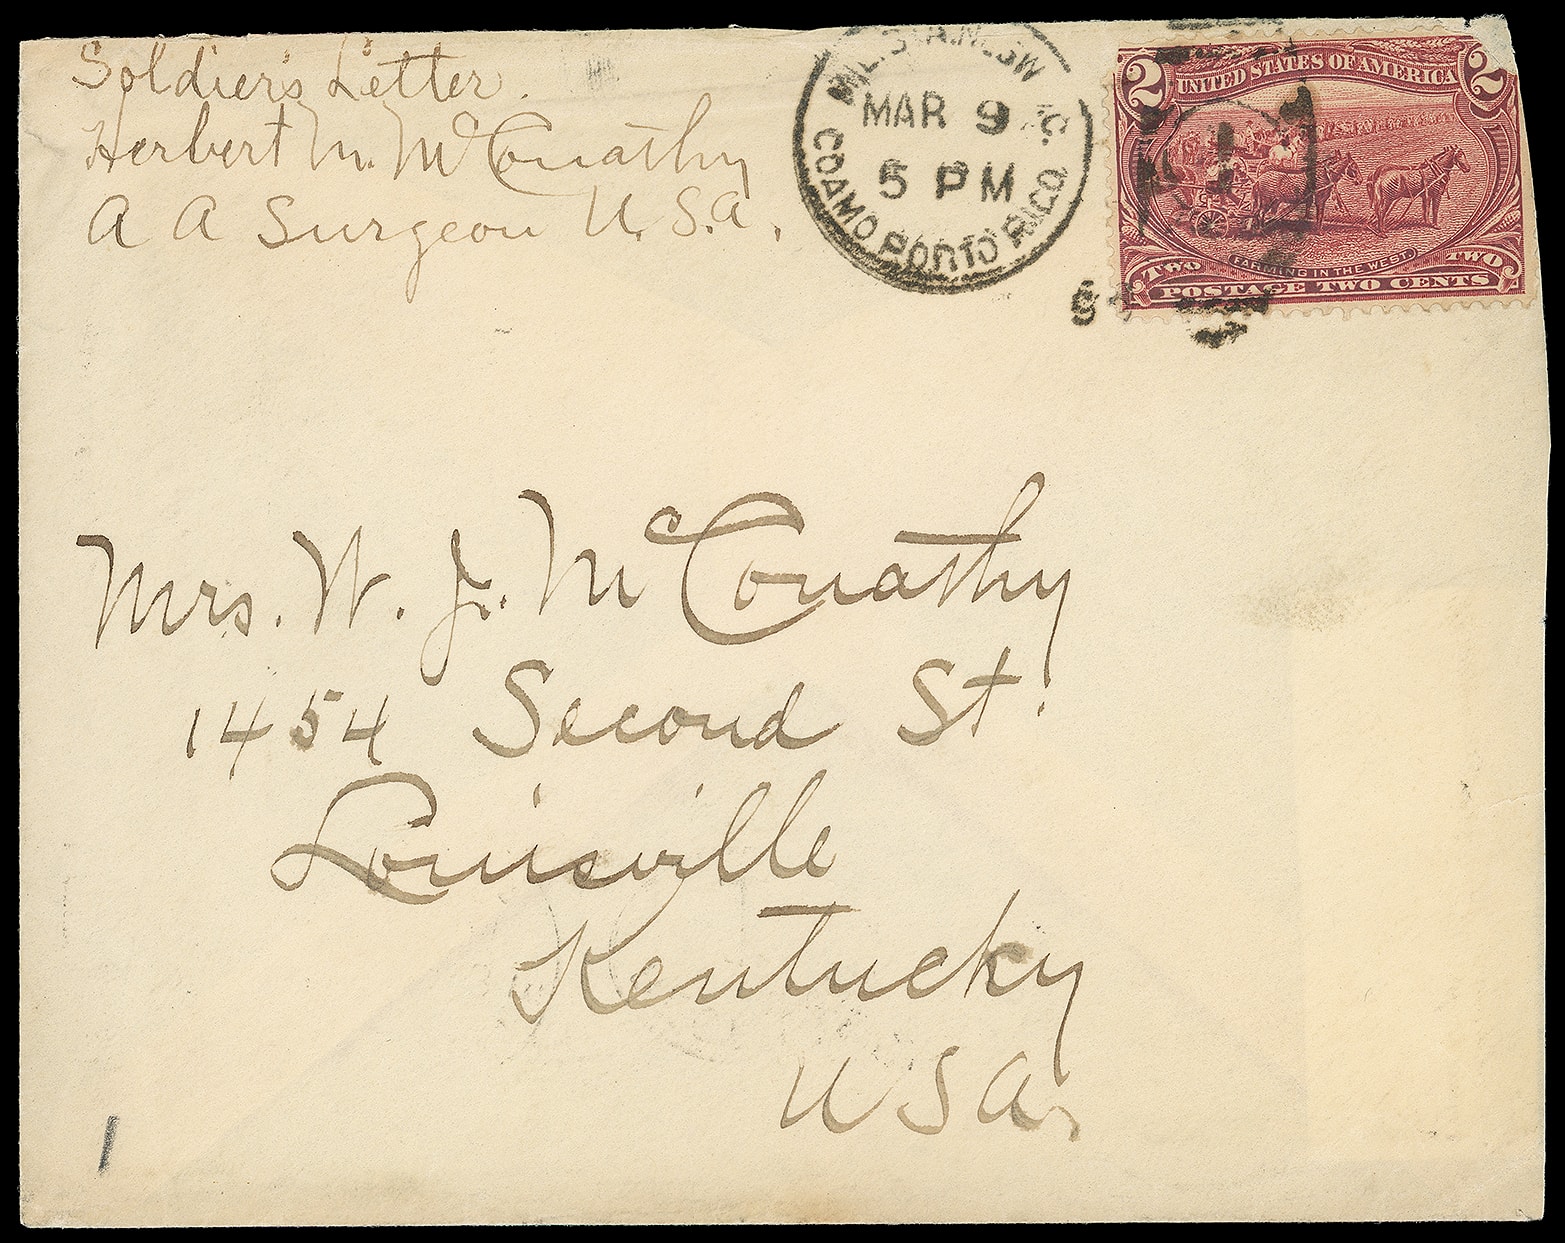 Soldier's Letter.
Herbert M. McConathy
A A Surgeon U. S. A.
MIL. STA. No. 5 W
MAR 9
5 PM
COAMO PORTO RICO.
2 UNITED STATES OF AMERICA 2
FARMING IN THE WEST.
TWO TWO
POSTAGE TWO CENTS
Mrs. W. J. McConathy
1454 Second St.
Louisville
Kentucky
U S A.
1